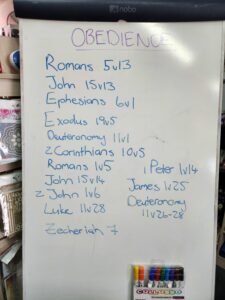 nobo
OBEDIENCE
Romans 5v13
John 15v13
Ephesians 6v1
Exodus 19v5
Deuteronomy 11v1
2 Corinthians 10v5
Romans 1v5
John 15v14
2 John 1v6
Luke 11v28
Zecheriah 7
1 Peter 1v14
James 1v25
Deuteronomy
11v26-28